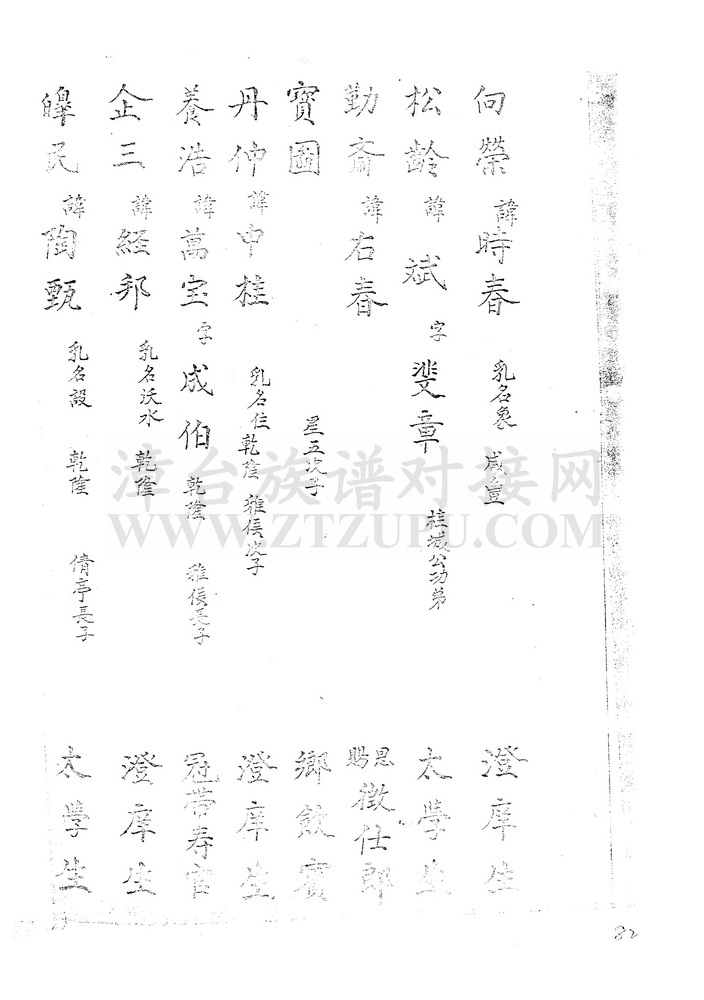 向榮 諱 時春 乳名象 咸豊 澄庠生
松齡 諱 斌 字 斐章 桂城公功弟 太學生
勤齋 諱 右春 恩賜 徵仕郎
寳圖 星五次子 鄉飲賓
丹仲 諱 中桂 乳名住 乾隆 雅侯次子 澄庠生
養浩 諱 萬宝 字 成伯 乾隆 雅侯長子 冠帶寿官
企三 諱 経邦 乳名沃水 乾隆 澄庠生
皞民 諱 陶甄 乳名設 乾隆 倩亭長子 太學生
漳台族谱对接网
WWW.ZTZUPU.COM
82